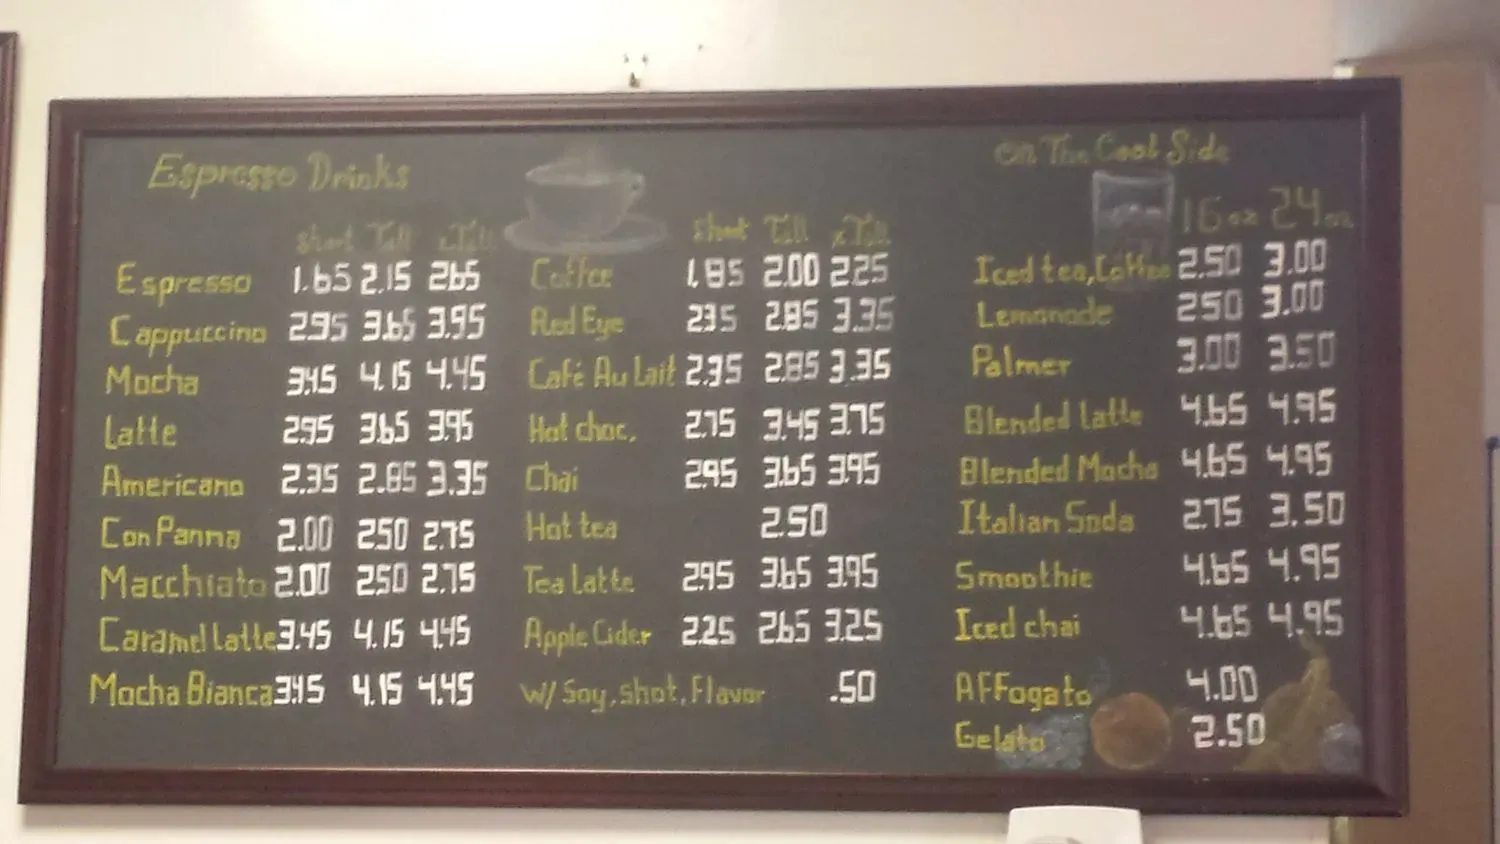 Espresso Drinks
Short Tall xTall
Espresso 1.65 2.15 2.65
Cappuccino 2.95 3.65 3.95
Mocha 3.45 4.15 4.45
Latte 2.95 3.65 3.95
Americano 2.35 2.85 3.35
Con Panna 2.00 2.50 2.75
Macchiato 2.00 2.50 2.75
Caramel Latte 3.45 4.15 4.45
Mocha Bianca 3.45 4.15 4.45
Short Tall xTall
Coffee 1.85 2.00 2.25
Red Eye 2.35 2.85 3.35
Café Au Lait 2.35 2.85 3.35
Hot choc. 2.75 3.45 3.75
Chai 2.95 3.65 3.95
Hot tea 2.50
Tea Latte 2.95 3.65 3.95
Apple Cider 2.25 2.65 3.25
w/ Soy, shot, Flavor .50
On The Cool Side
16 oz 24 oz
Iced tea, Coffee 2.50 3.00
Lemonade 2.50 3.00
Palmer 3.00 3.50
Blended Latte 4.65 4.95
Blended Mocha 4.65 4.95
Italian Soda 2.75 3.50
Smoothie 4.65 4.95
Iced chai 4.65 4.95
Affogato 4.00
Gelato 2.50